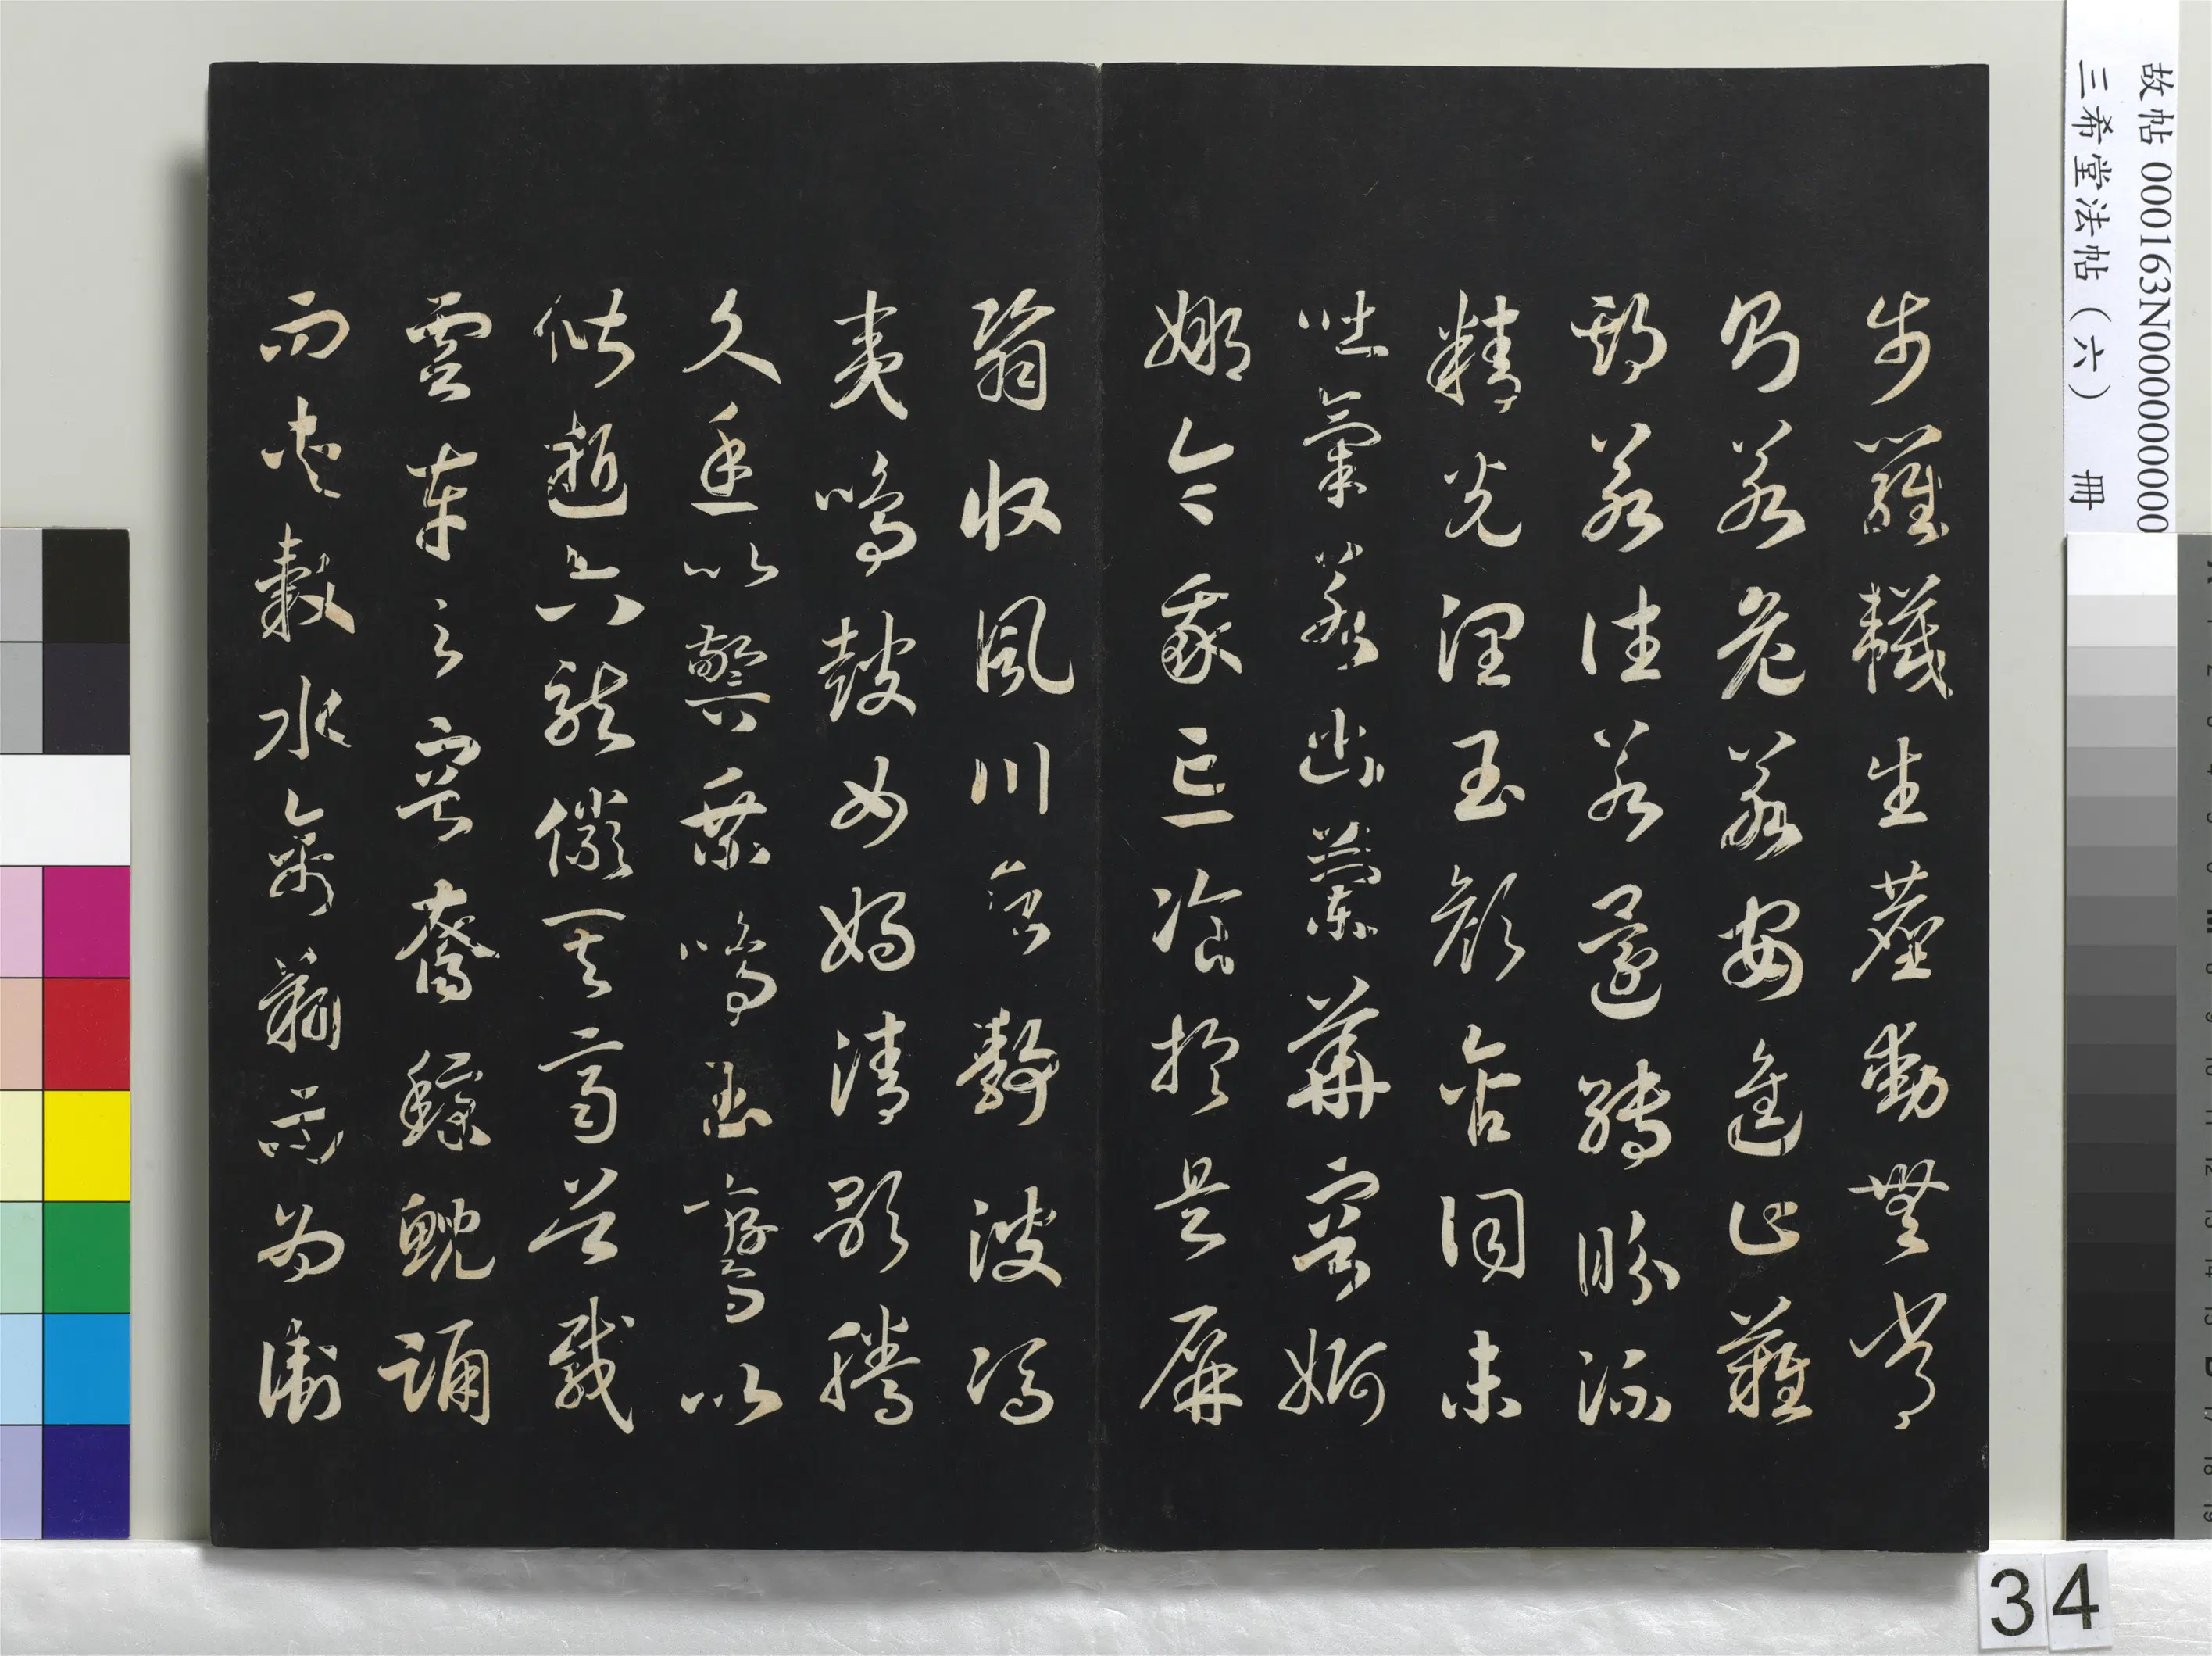 步羅韈生塵動無常
則若危若安進止難
期若往若還轉眄流
精光潤玉顏含詞未
吐氣若幽蘭華容婀
娜令我忘飡於是屏
翳收風川后靜波馮
夷鳴鼓女媧清歌騰
文魚以警乘鳴玉鸞以
偕逝六龍儼其齊首載
雲車之容裔鯨鯢踊
而夾轂水禽翔而為衛
故帖 000163N000000000
三希堂法帖（六） 冊
34